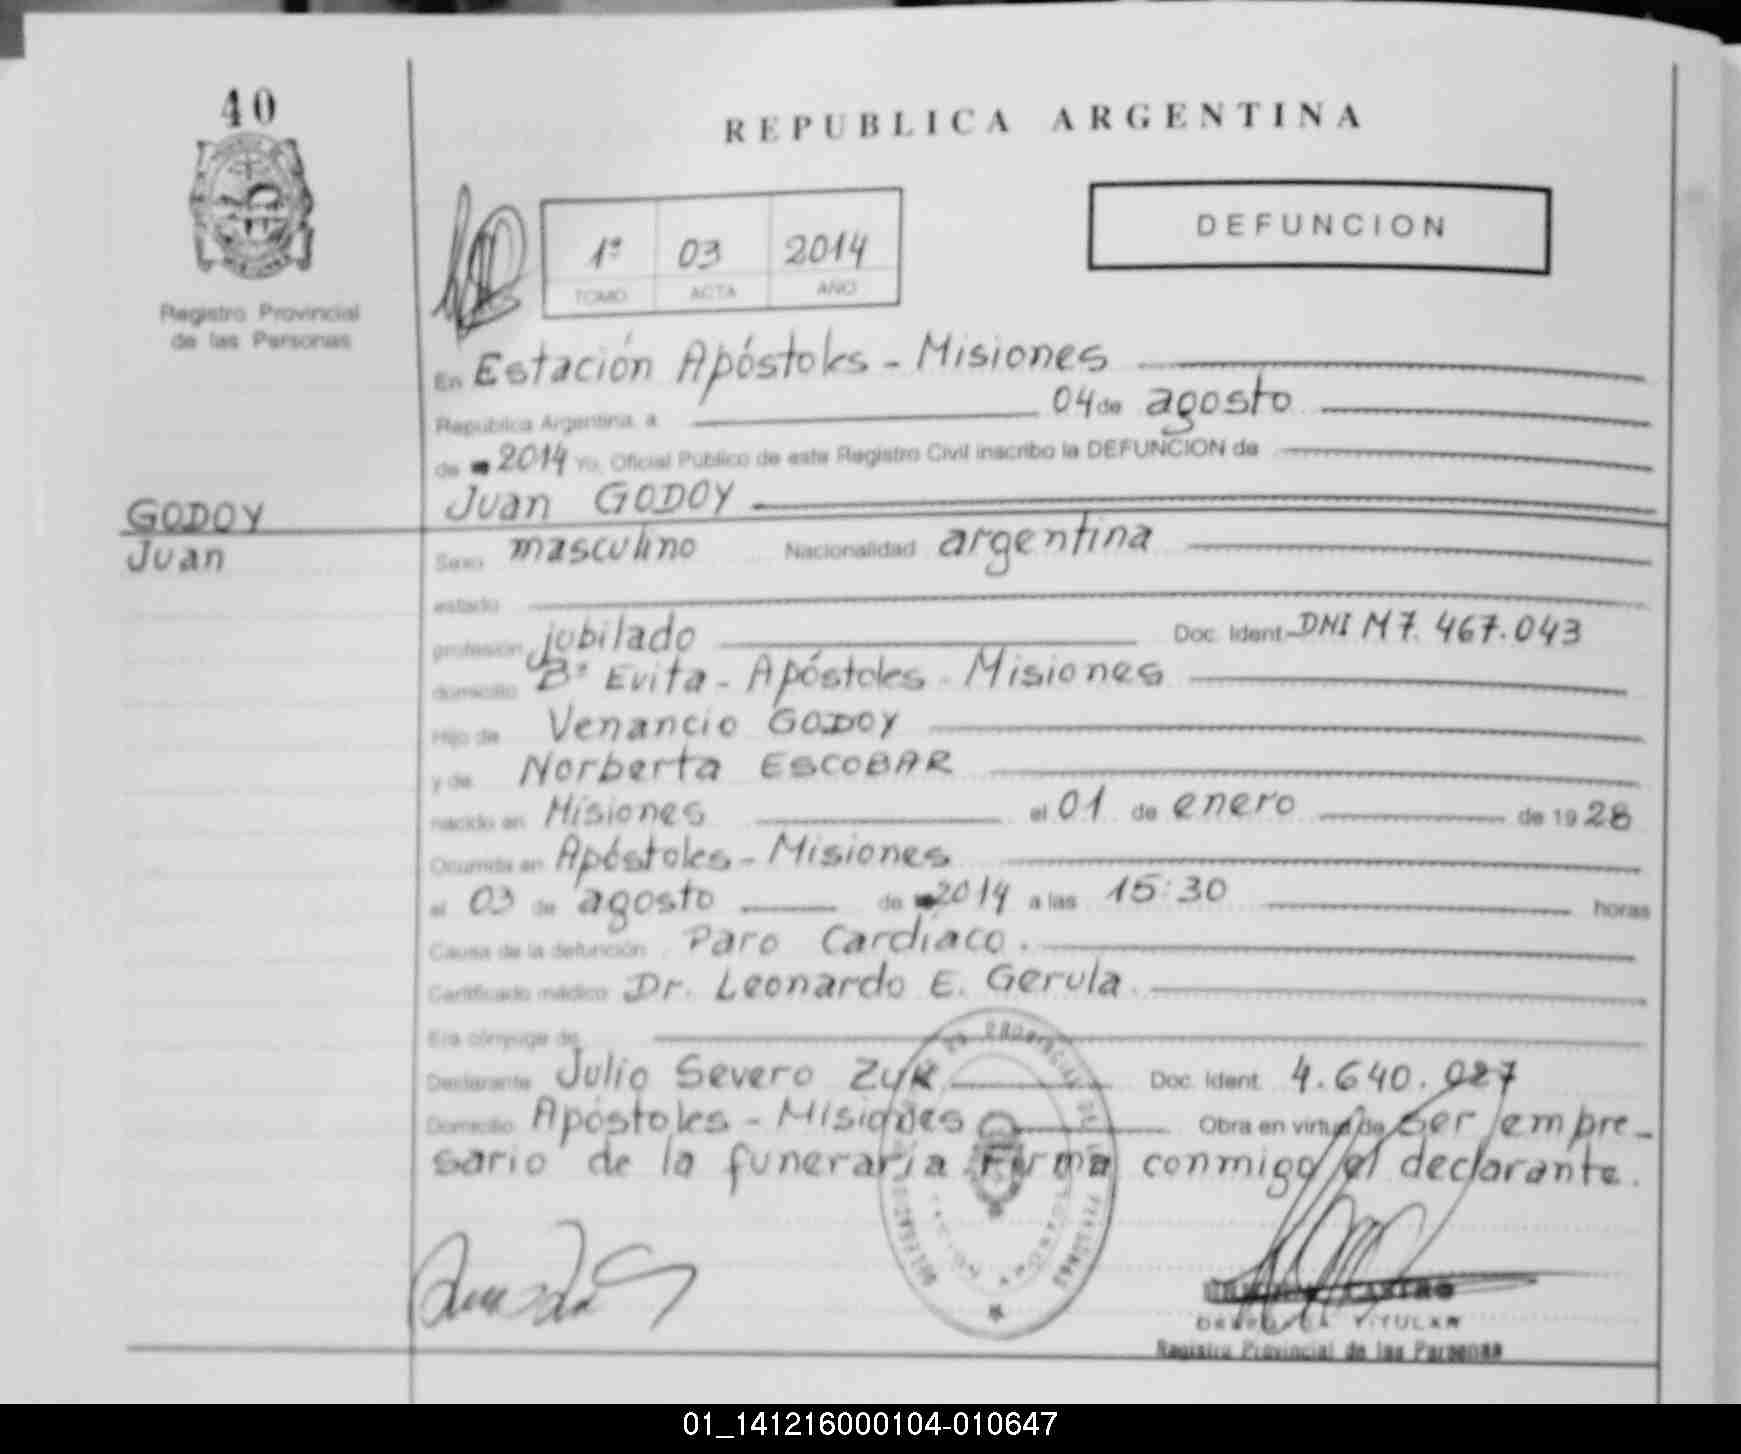 40
REPUBLICA ARGENTINA
DEFUNCION
1º 03 2014
TOMO ACTA AÑO
Registro Provincial
de las Personas
En Estación Apóstoles - Misiones
República Argentina, a 04 de agosto
de 2014 Yo, Oficial Público de este Registro Civil inscribo la DEFUNCION de
Juan GODOY
GODOY
Juan
Sexo masculino Nacionalidad argentina
estado
profesión jubilado Doc. Ident. DNI M 7.467.043
domicilio Bº Evita - Apóstoles - Misiones
Hijo de Venancio GODOY
y de Norberta ESCOBAR
nacido en Misiones el 01 de enero de 1928
Ocurrida en Apóstoles - Misiones
el 03 de agosto de 2014 a las 15:30 horas
Causa de la defunción Paro Cardíaco.
Certificado médico Dr. Leonardo E. Gerula.
Era cónyuge de
Declarante Julio Severo ZUK Doc. Ident. 4.640.027
Domicilio Apóstoles - Misiones Obra en virtud de ser empre-
sario de la funeraria Firma conmigo el declarante.
CASTRO
TITULAR
Registro Provincial de las Personas
01_141216000104-010647